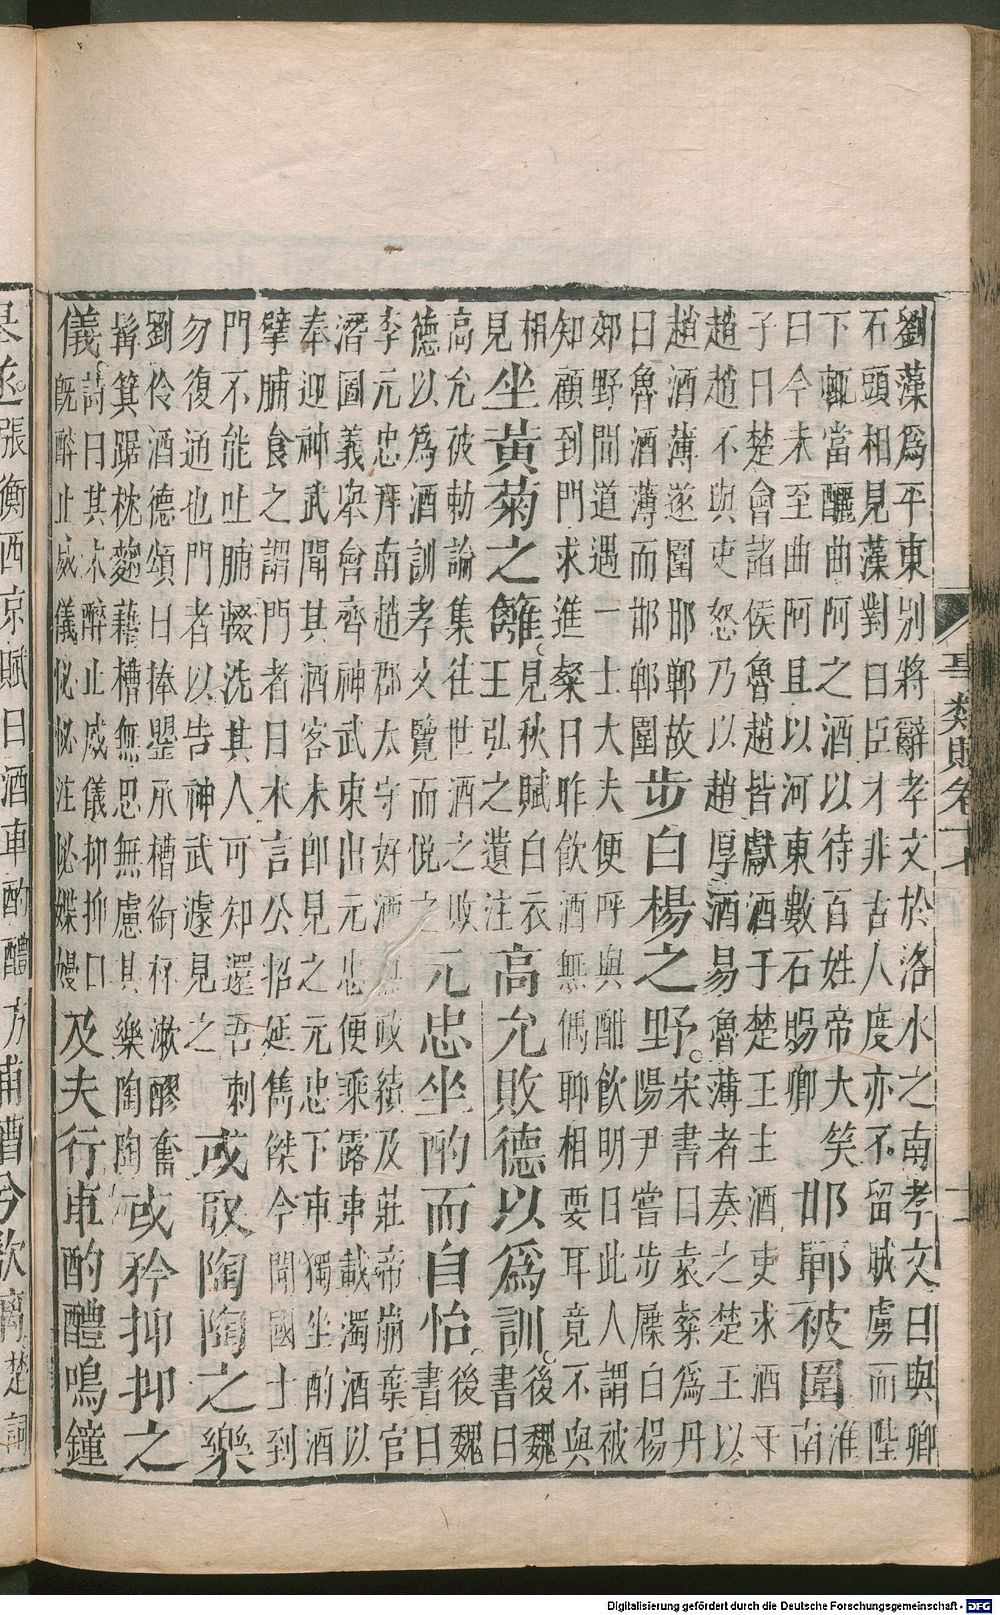 劉藻爲平東別將辭孝文於洛水之南孝文曰與卿
石頭相見藻對曰臣才非古人度亦不留賊虜而陛
下輒當釃曲阿之酒以待百姓帝大笑
曰今未至曲阿且以河東數石賜卿
邯鄲被圍
淮
南
子曰楚會諸侯魯趙皆獻酒于楚王主酒吏求酒于
趙趙不與吏怒乃以趙厚酒易魯薄者奏之楚王以
趙酒薄遂圍邯鄲故
曰魯酒薄而邯鄲圍
步白楊之野
宋書曰袁粲爲丹
陽尹嘗步屧白楊
郊野間道遇一士大夫便呼與酣飲明日此人謂被
知顧到門求進粲曰昨飲酒無偶聊相要耳竟不與
相
見
坐黃菊之籬
見秋賦白衣
王弘之遺注
高允敗德以爲訓
後魏
書曰
高允被勅論集往世酒之敗
德以爲酒訓孝文覽而悅之
元忠坐酌而自怡
後魏
書曰
李元忠拜南趙郡太守好酒無政績及莊帝崩棄官
潛圖義舉會齊神武東出元忠便乘露車載濁酒以
奉迎神武聞其酒客未即見之元忠下車獨坐酌酒
擘脯食之謂門者曰本言公招延雋傑今聞國士到
門不能吐脯輟洗其人可知還吾刺
勿復通也門者以告神武遽見之
或取陶陶之樂
劉伶酒德頌曰捧甖承槽銜杯漱醪奮
髯箕踞枕麴藉槽無思無慮其樂陶陶
或矜抑抑之
儀
詩曰其未醉止威儀抑抑曰
既醉止威儀怭怭注怭媟嫚
及夫行車酌醴鳴鐘
張衡西京賦曰酒車酌醴方
事類賦卷十七
十一
Digitalisierung gefördert durch die Deutsche Forschungsgemeinschaft - DFG